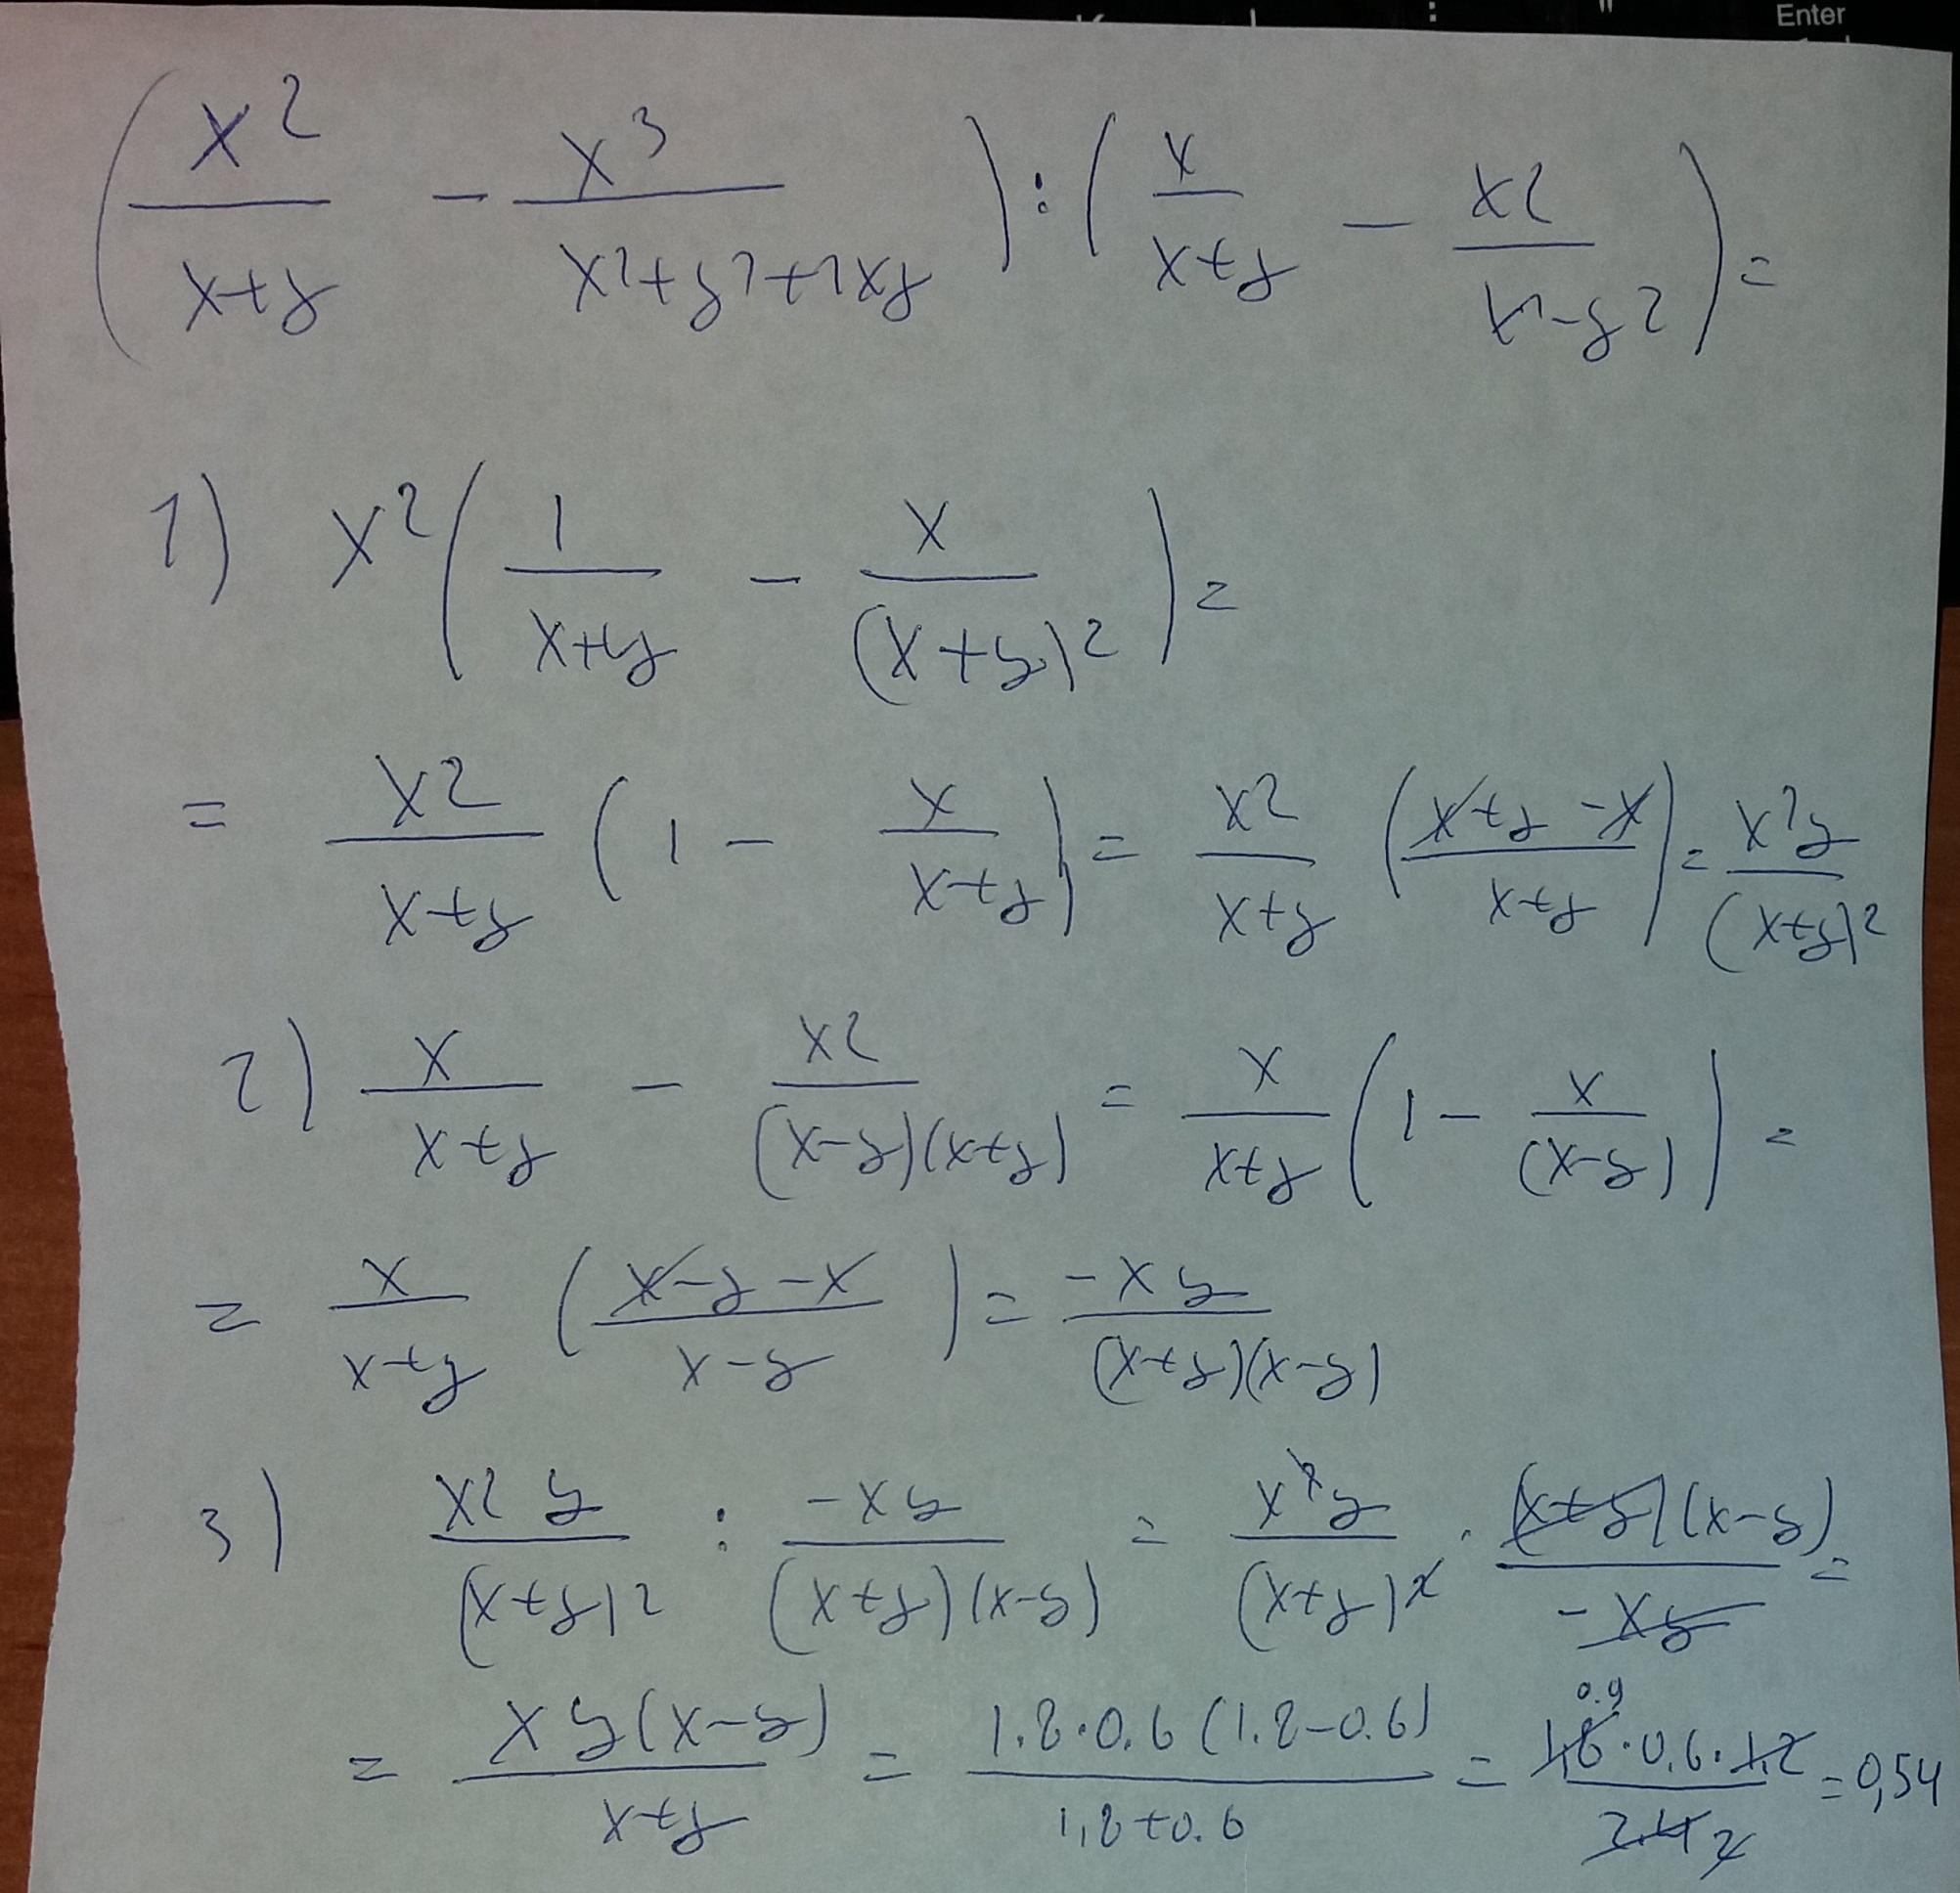 Enter
(x²/(x+y) - x³/(x²+y²+2xy)) : (x/(x+y) - x²/(x²-y²)) =
1) x²(1/(x+y) - x/(x+y)²) =
= x²/(x+y) (1 - x/(x+y)) = x²/(x+y) ((x+y-x)/(x+y)) = x²y/(x+y)²
2) x/(x+y) - x²/((x-y)(x+y)) = x/(x+y) (1 - x/(x-y)) =
= x/(x+y) ((x-y-x)/(x-y)) = -xy/((x+y)(x-y))
3) x²y/(x+y)² : -xy/((x+y)(x-y)) = x²y/(x+y)² · (x+y)(x-y)/(-xy) =
= xy(x-y)/(x+y) = 1.8·0.6(1.8-0.6)/(1,8+0.6) = 0.9 1.8·0.6·1.2/2.4 2 = 0,54